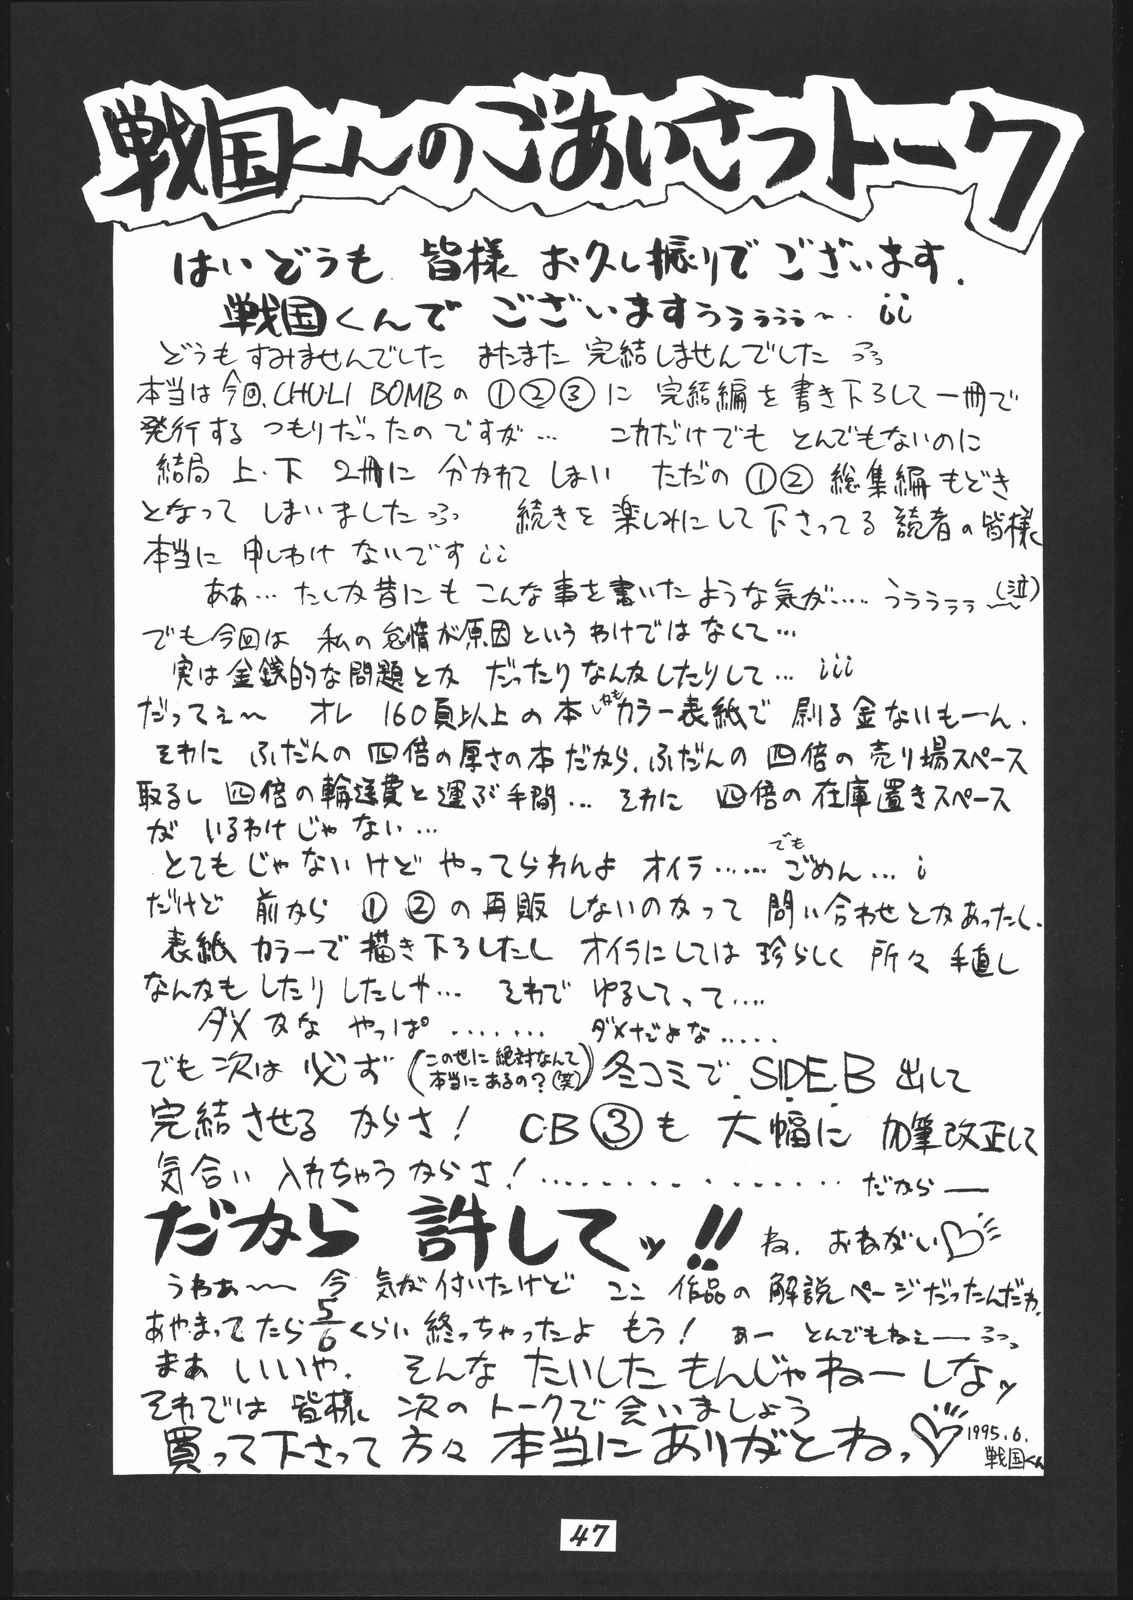 戦国くんのごあいさつトーク
はいどうも 皆様 お久し振りでございます.
戦国くんで ございますぅぅぅぅぅ〜.. ii
どうもすみませんでした またまた 完結しませんでした
本当は今回、CHU・LI BOMBの ①②③に 完結編を書き下ろして一冊で
発行する つもりだったのですが… これだけでも とんでもないのに
結局 上・下 2冊に 分かれてしまい ただの ①② 総集編もどき
となって しまいました 続きを 楽しみにして下さってる 読者の皆様
本当に 申しわけ ないです ii
ああ… たしか昔にも こんな事を書いたような気が…. うぅぅぅぅ〜(泣)
でも今回は 私の怠惰が原因というわけではなくて…
実は金銭的な問題とか だったりなんかしたりして… iii
だってぇ〜 オレ 160頁以上の本 しかもカラー表紙で 刷る金ないもーん.
それに ふだんの 四倍の厚さの本だから、ふだんの 四倍の売り場スペース
取るし 四倍の輸送費と運ぶ手間… それに 四倍の在庫置きスペース
が いるわけじゃない…
とてもじゃないけど やってらわんよ オイラ…… でもごめん… i
だけど 前から ①②の再販 しないのかって 問い合わせとかあったし.
表紙 カラーで描き下ろしたし オイラにしては 珍らしく 所々 手直し
なんかも したりしたしゃ… それで ゆるしてって….
ダメ かな やっぱ ....... ダメだよな.....
でも次は 必ず (この世に絶対なんて本当にあるの？(笑)) 冬コミで SIDE.B 出して
完結させる からさ! C・B③も 大幅に 加筆改正して
気合い 入れちゃうからさ! ............... だから―
だから 許してッ!! ね、おねがい♡
うわぁ〜 今 気が付いたけど ここ 作品の解説ページだったんだわ.
あやまってたら 5/6くらい 終っちゃったよ もう! ぁー とんでもねぇー
まあ いいや. そんな たいした もんじゃねーしなッ
それでは 皆様 次のトークで会いましょう
買って下さって方々 本当にありがとねっ♡ 1995.6.
戦国くん
47